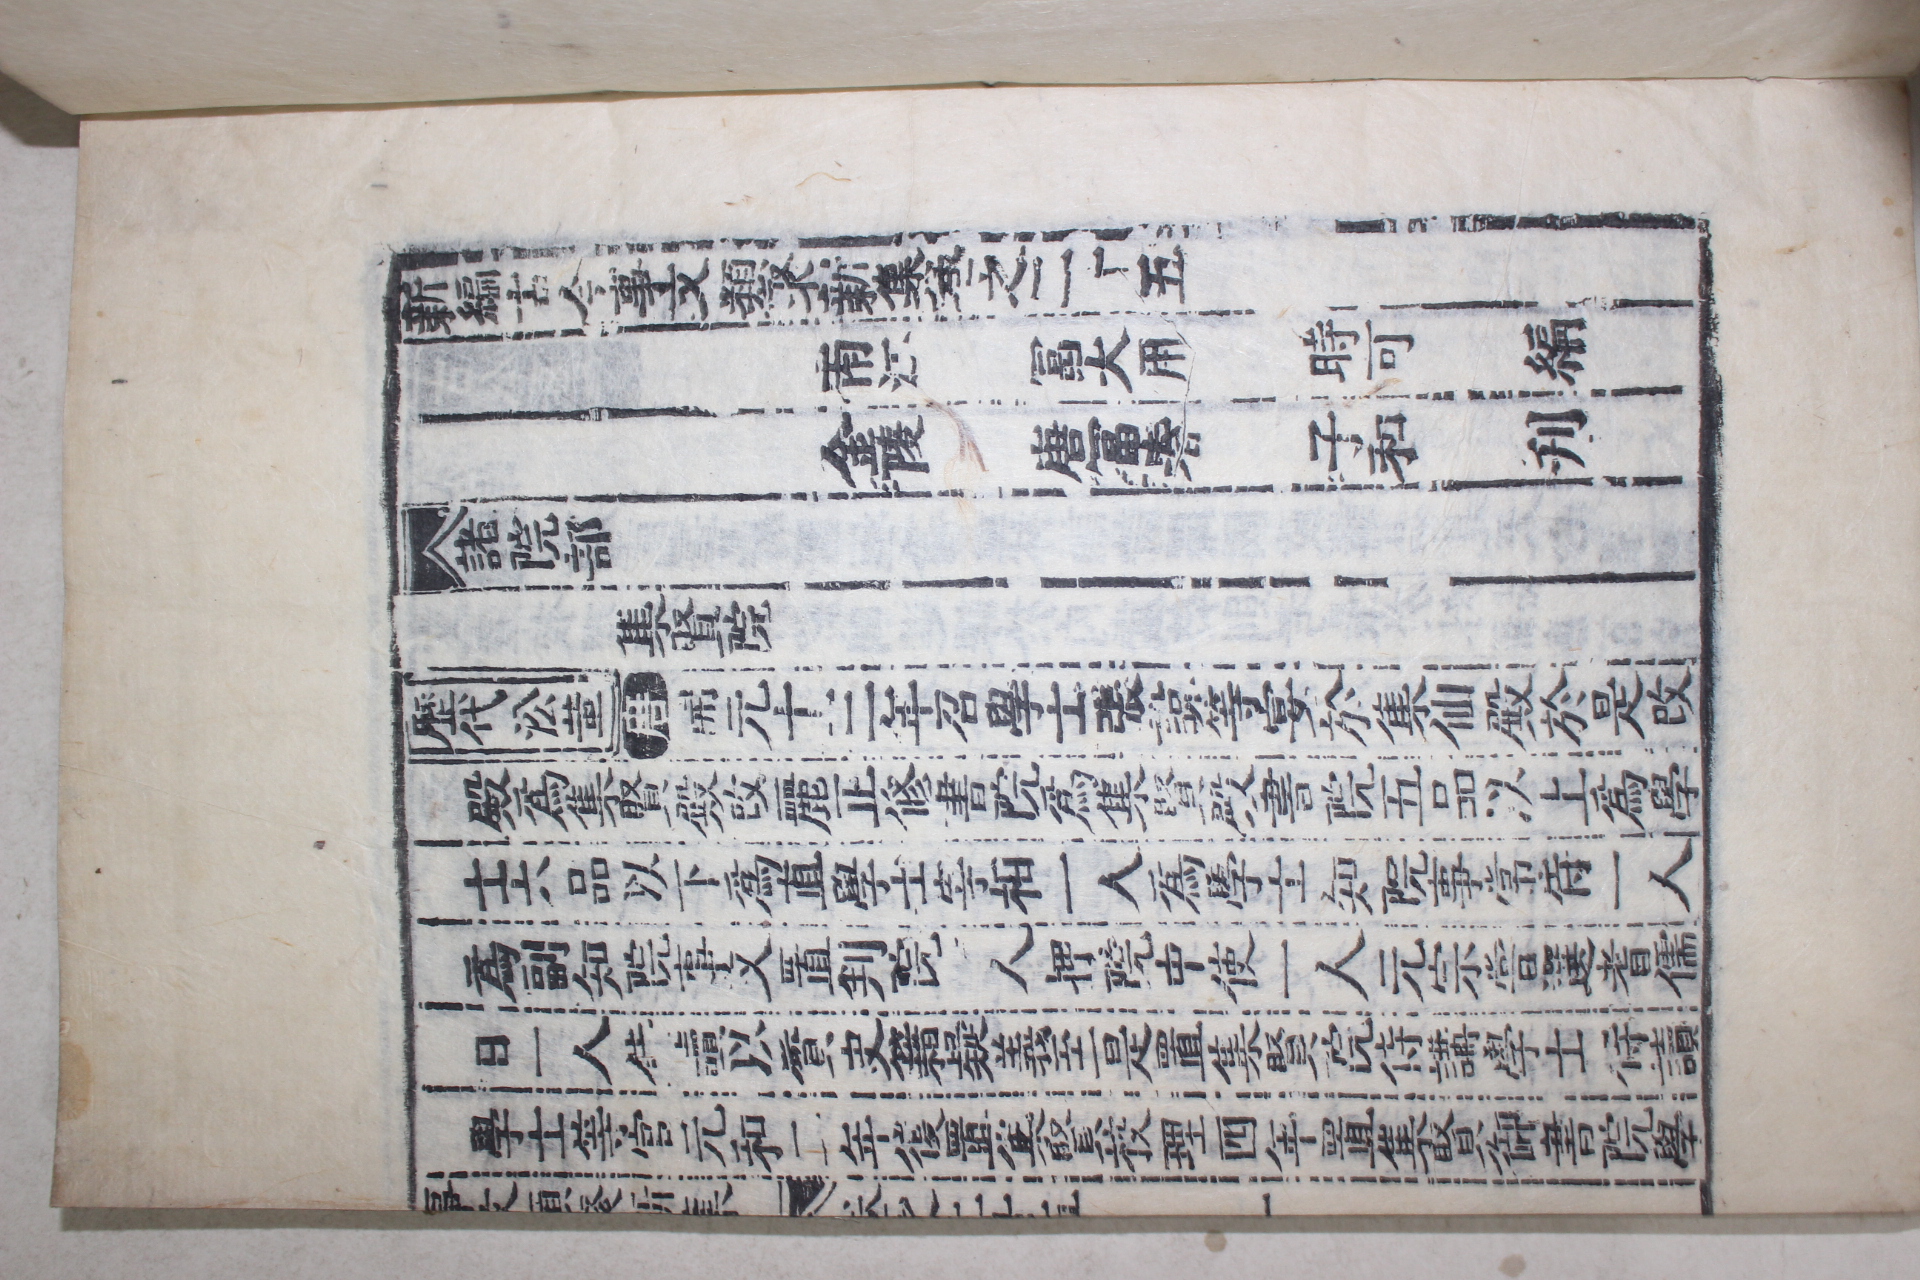 新編古今事文類聚新集卷之二十五
南江 富大用 時可 編
金陵 唐富春 子和 刋
諸院部
集賢院
歷代沿革 唐 開元十二年召學士張說等宴於集仙殿於是改
殿爲集賢殿改麗正修書院爲集賢殿書院五品以上爲學
士六品以下爲直學士宰相一人爲學士知院事常侍一人
爲副知院事又置判院一人押院中使一人元宗嘗選耆儒
日一人侍讀以質史籍疑義至是置集賢院侍講學士侍讀
學士等官元和二年復置集賢校理四年置集賢御書院學
事文類聚新集 卷之二十五 一